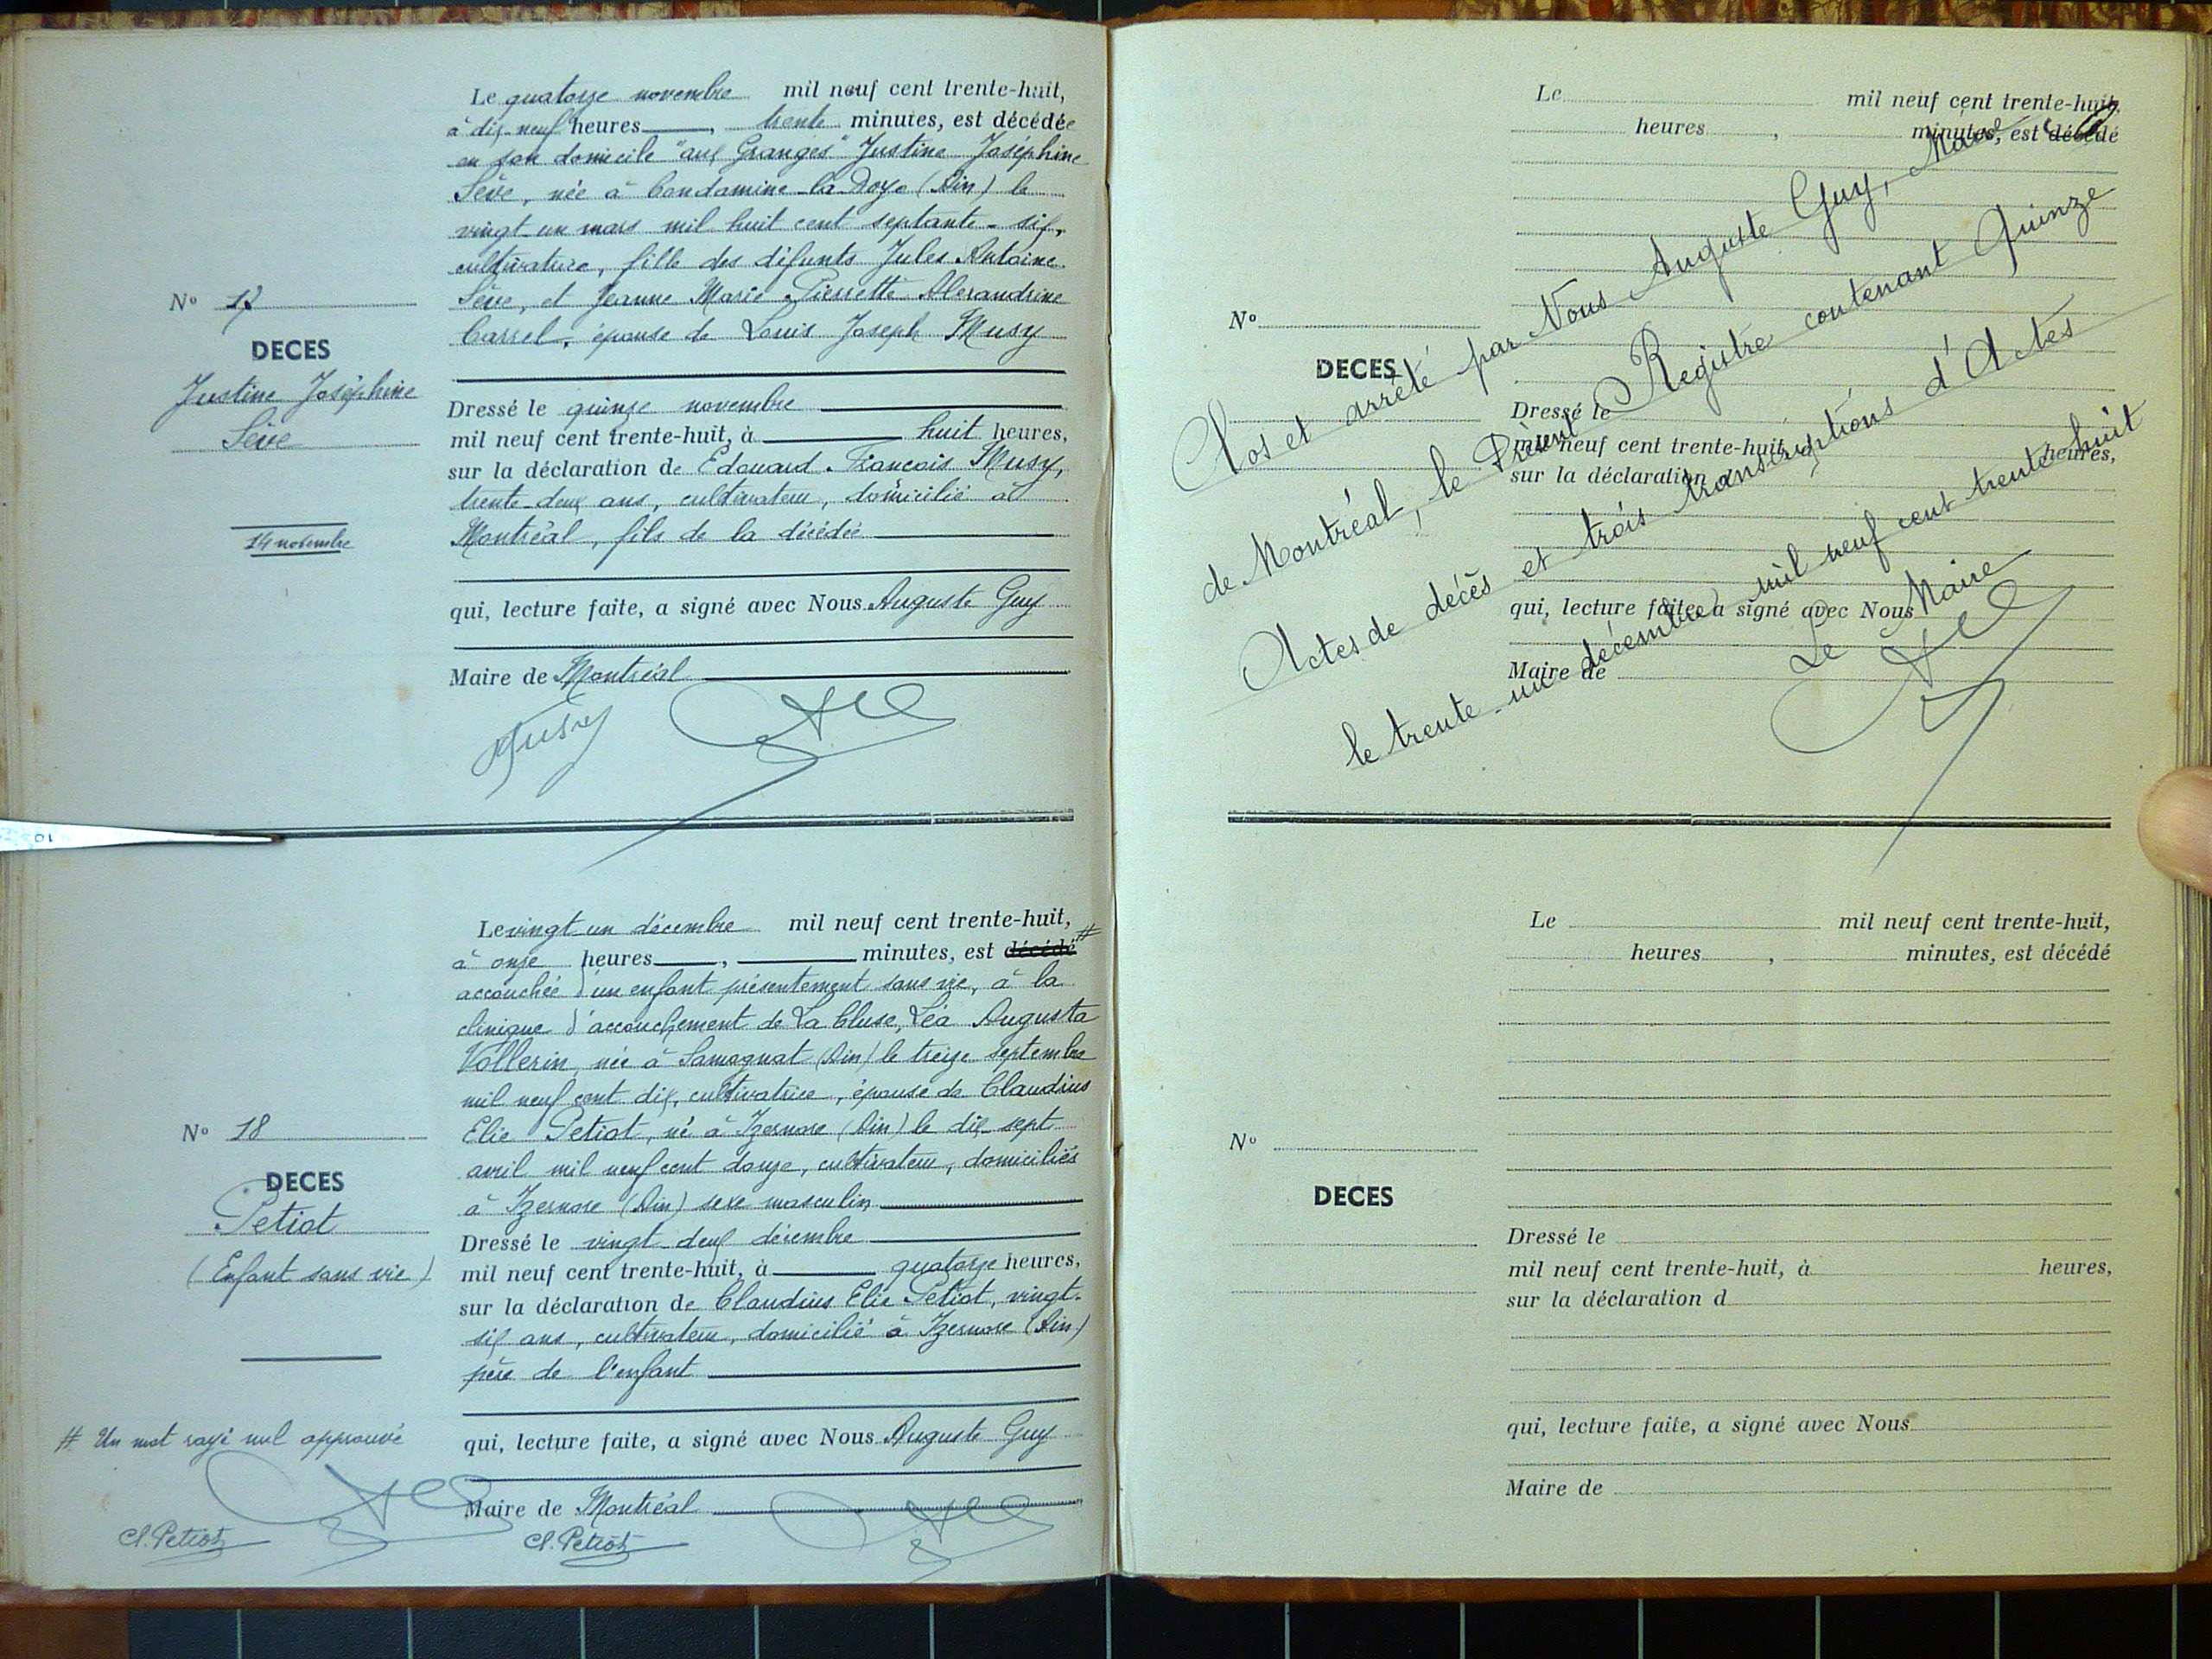 Le quatorze novembre mil neuf cent trente-huit,
à dix-neuf heures, trente minutes, est décédée
en son domicile "aux Granges" Justine Joséphine
Sève, née à Condamine-la-Doye (Ain) le
vingt-un mars mil huit cent septante-six,
cultivatrice, fille des défunts Jules Antoine
Sève, et Jeanne Marie Pierrette Alexandrine
Carrel, épouse de Louis Joseph Musy
Nº 17
DECES
Justine Joséphine
Sève
14 novembre
Dressé le quinze novembre
mil neuf cent trente-huit, à huit heures,
sur la déclaration de Edouard François Musy,
trente-deux ans, cultivateur, domicilié à
Montréal, fils de la décédée
qui, lecture faite, a signé avec Nous Auguste Guy
Maire de Montréal
Musy
Le vingt-un décembre mil neuf cent trente-huit,
à onze heures, minutes, est décédé #
accouchée d'un enfant présentement sans vie, à la
clinique d'accouchement de La Cluse, Léa Augusta
Vollerin, née à Samognat (Ain) le treize septembre
mil neuf cent dix, cultivatrice, épouse de Claudius
Elie Petiot, né à Izernore (Ain) le dix-sept
avril mil neuf cent douze, cultivateur, domiciliés
à Izernore (Ain) sexe masculin
Nº 18
DECES
Petiot
(Enfant sans vie)
Dressé le vingt-deux décembre
mil neuf cent trente-huit, à quatorze heures,
sur la déclaration de Claudius Elie Petiot, vingt-
six ans, cultivateur, domicilié à Izernore (Ain)
père de l'enfant
qui, lecture faite, a signé avec Nous Auguste Guy
Maire de Montréal
# Un mot rayé nul approuvé
Cl. Petiot
Cl. Petiot
Le mil neuf cent trente-huit,
heures, minutes, est décédé
Nº
DECES
Dressé le
mil neuf cent trente-huit, à heures,
sur la déclaration
qui, lecture faite, a signé avec Nous
Maire de
Clos et arrêté par Nous Auguste Guy, Maire
de Montréal, le Présent Registre contenant Quinze
Actes de décès et trois transcriptions d'Actes
le trente-un décembre mil neuf cent trente huit
Le Maire
Le mil neuf cent trente-huit,
heures, minutes, est décédé
Nº
DECES
Dressé le
mil neuf cent trente-huit, à heures,
sur la déclaration d
qui, lecture faite, a signé avec Nous
Maire de